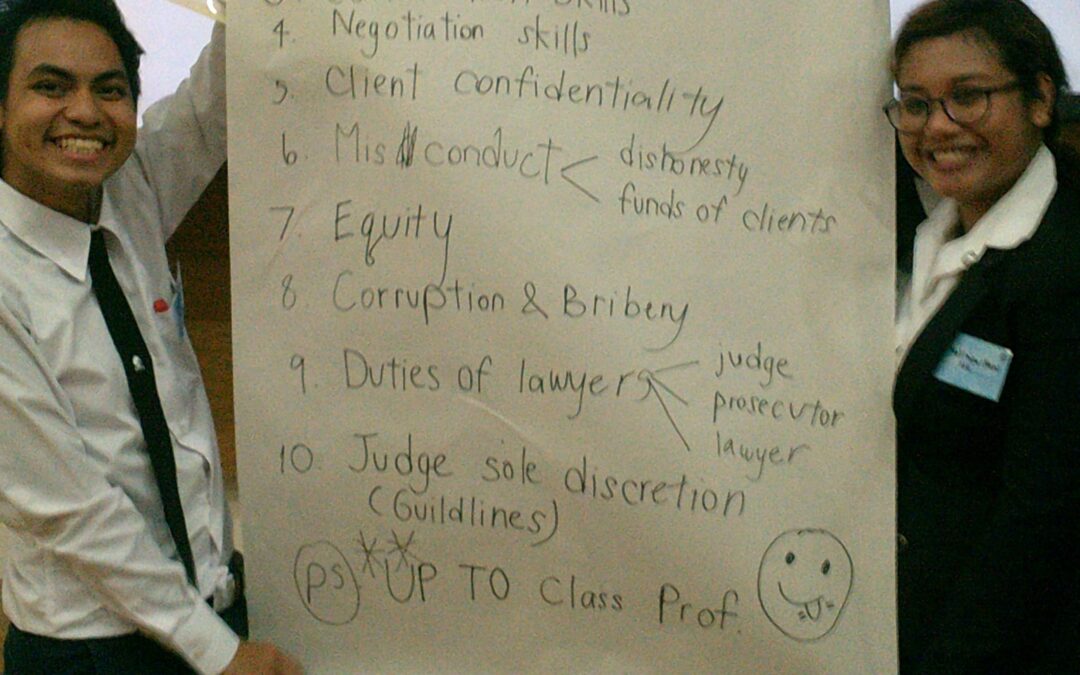 skills
4. Negotiation skills
5. Client confidentiality
6. Mis conduct
dishonesty
funds of clients
7. Equity
8 Corruption & Bribery
9. Duties of lawyers
judge
prosecutor
lawyer
10. Judge sole discretion
(Guildlines)
PS **UP TO Class Prof.